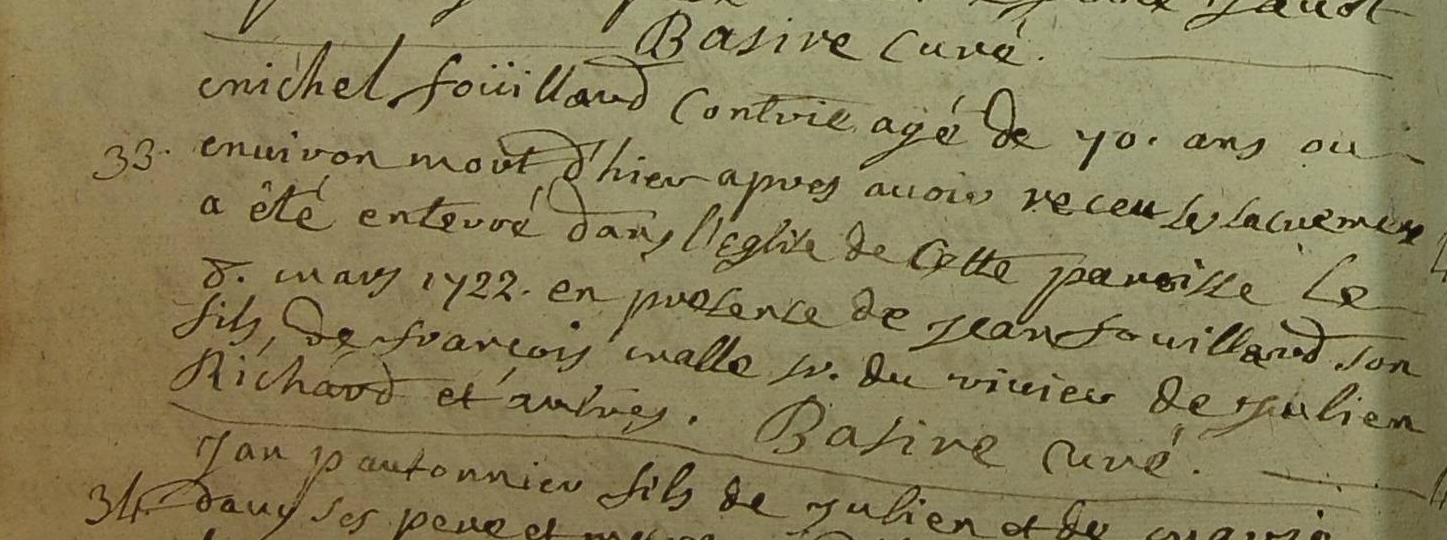 Basire Curé.
michel foüillard Contrie agé de 70. ans ou
33. enuiron mort d'hier apres auoir receu les sacremens
a été enterré dans l'eglise de Cette paroisse Le
8. mars 1722. en presence de jean fouillard son
fils, de françois malle sr. du viuier de julien
Richard et autres. Basire Curé.
jan pautonnier fils de julien et de marie
34 dauy ses pere et mere